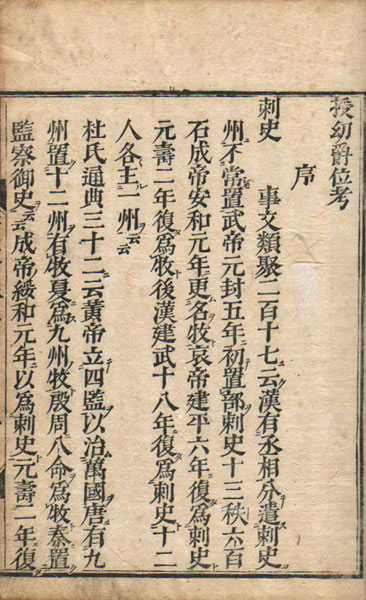 授幼爵位考
序
刺史　事文類聚二百十七云漢有丞相分遣刺史
州不常置武帝元封五年初置部刺史十三秩六百
石成帝安和元年更名牧哀帝建平六年復爲刺史
元壽二年復爲牧後漢建武十八年復爲刺史十二
人各主一州云云
杜氏通典三十二云黃帝立四監以治萬國唐有九
州置十二州有牧夏爲九州牧殷周八命爲牧秦置
監察御史云云成帝綏和元年以爲刺史元壽二年復